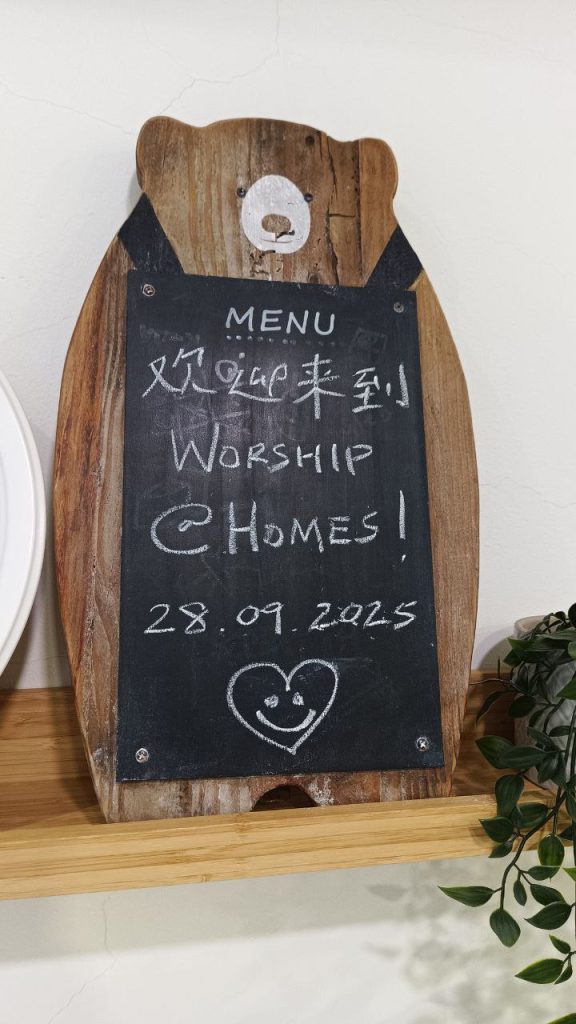 MENU
欢迎来到
WORSHIP
@HOMES!
28.09.2025